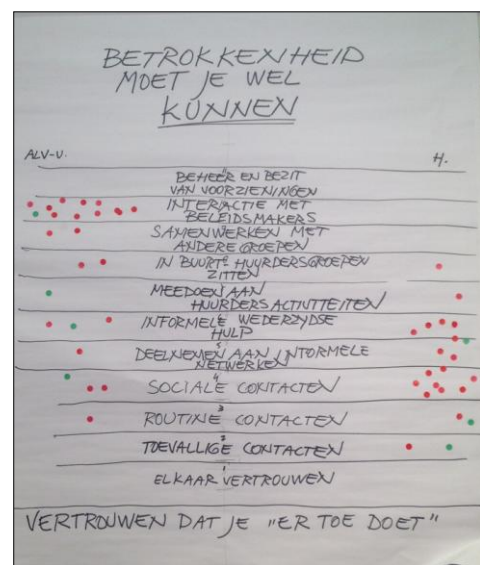 BETROKKENHEID
MOET JE WEL
KUNNEN
ALV-U. H.
BEHEER EN BEZIT
VAN VOORZIENINGEN
INTERACTIE MET
BELEIDSMAKERS
SAMENWERKEN MET
ANDERE GROEPEN
IN BUURT- HUURDERSGROEPEN
ZITTEN
MEEDOEN AAN
HUURDERSACTIVITEITEN
INFORMELE WEDERZYDSE
HULP
5
DEELNEMEN AAN INFORMELE
NETWERKEN
4
SOCIALE CONTACTEN
3
ROUTINE CONTACTEN
2
TOEVALLIGE CONTACTEN
1
ELKAAR VERTROUWEN
VERTROUWEN DAT JE "ER TOE DOET"